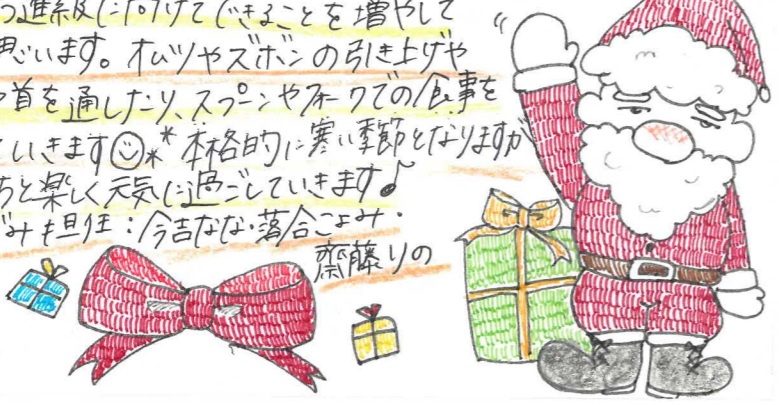 進級に向けてできることを増やして
思います。オムツやズボンの引き上げや
首を通したり、スプーンやフォークでの食事を
いきます 本格的に寒い季節となりますが
ちと楽しく元気に過ごしていきます♪
ぐみ担任:今吉なな・落合こよみ・
齋藤りの